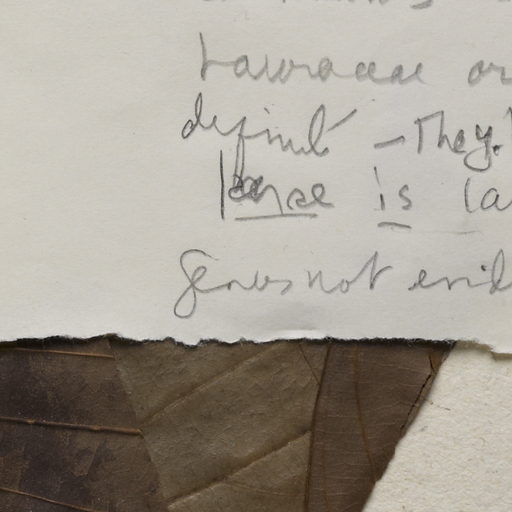 Lauraceae or
definite – They
is la
Genus not evid